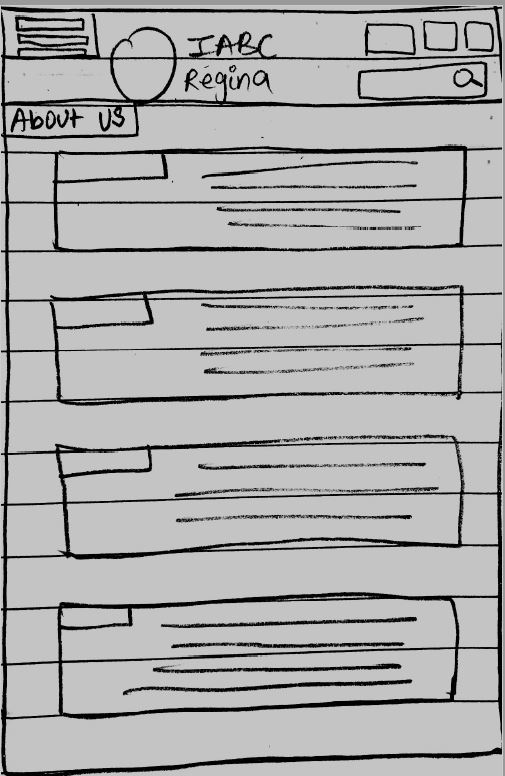 IABC
Régina
About us